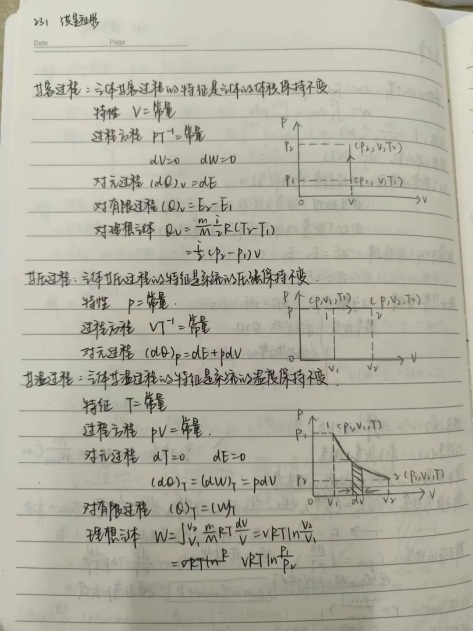 Date Page
等容过程：气体等容过程的特征是气体的体积保持不变
特性 V=常量
过程方程 PT⁻¹=常量
dV=0 dW=0
对元过程 (dQ)v=dE
对有限过程 (Q)v=E₂-E₁
对理想气体 Qv=m/M i/2 R(T₂-T₁)
=i/2 (p₂-p₁)V
P
P₂
(P₂,V,T₂)
P₁
(P₁,V,T₁)
0 V₁ V
等压过程：气体等压过程的特征是系统的压强保持不变.
特性 p=常量.
过程方程 VT⁻¹=常量
对元过程 (dQ)p=dE+pdV
P
P
(P,V₁,T₁)
1
(P,V₂,T₂)
2
0 V₁ V₂ V
等温过程：气体等温过程的特征是系统的温度保持不变.
特征 T=常量
过程方程 pV=常量.
对元过程 dT=0 dE=0
(dQ)T=(dW)T=pdV
对有限过程 (Q)T=(W)T
理想气体 W=∫V₁V₂ m/M RT dV/V=νRTln V₂/V₁
νRTln P₁/P₂
P
P₁
1 (P₁,V₁,T)
P₂
2 (P₂,V₂,T)
0 V₁ dV V₂ V